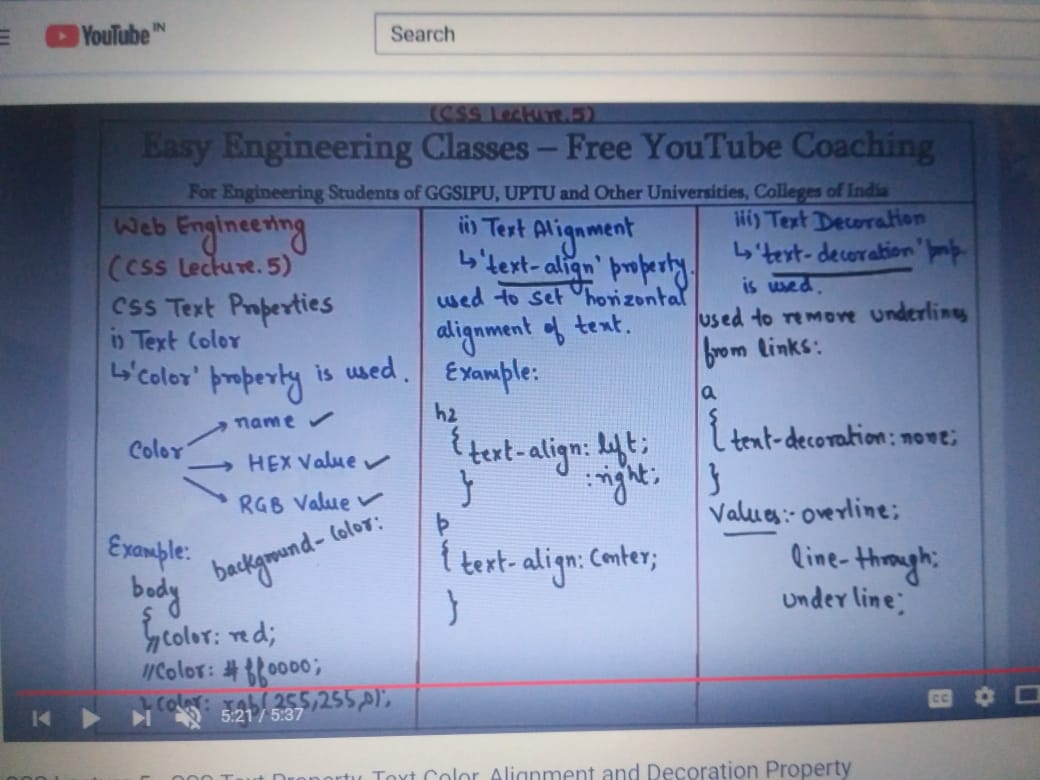 YouTube IN
Search
(CSS Lecture.5)
Easy Engineering Classes – Free YouTube Coaching
For Engineering Students of GGSIPU, UPTU and Other Universities, Colleges of India
Web Engineering
(CSS Lecture.5)
CSS Text Properties
i) Text Color
↳'color' property is used.
Color
name ✓
HEX Value ✓
RGB Value ✓
Example:
background-color:
body
{
//color: red;
//Color: #ff0000;
color: rgb(255,255,0);
ii) Text Alignment
↳'text-align' property.
used to set horizontal
alignment of text.
Example:
h2
{ text-align: left;
:right;
}
p
{ text-align: Center;
}
iii) Text Decoration
↳'text-decoration' prop
is used.
used to remove underlines
from links:
a
{ text-decoration: none;
}
Values:- overline;
line-through;
underline;
5:21 / 5:37
CC
Text Property, Text Color, Alignment and Decoration Property